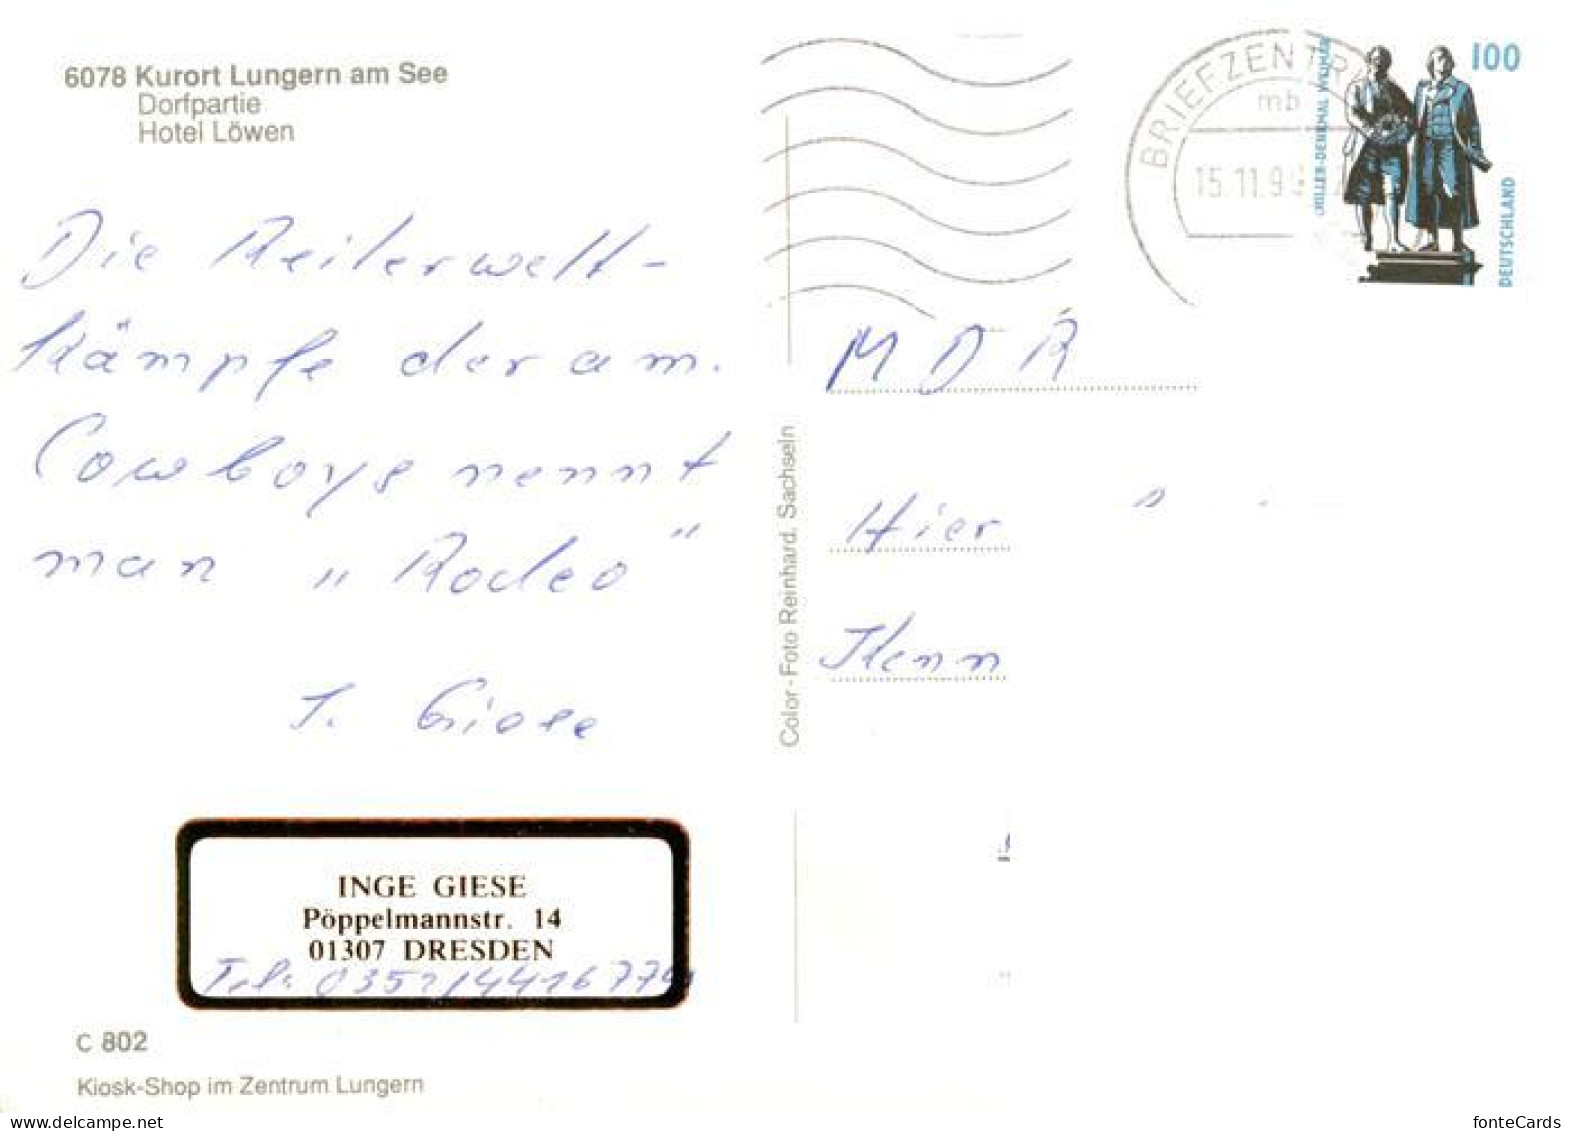 6078 Kurort Lungern am See
Dorfpartie
Hotel Löwen
Die Reiterwett-
kämpfe der am.
Cowboys nennt
man „Rodeo"
I. Giese
INGE GIESE
Pöppelmannstr. 14
01307 DRESDEN
Tel:
C 802
Kiosk-Shop im Zentrum Lungern
Color - Foto Reinhard. Sachseln
BRIEFZENTR
mb
15.11.9
100
DEUTSCHLAND
HILLER-DENKMAL WEIMAR
MDR
Hier
Kenn
delcampe.net
fonteCards